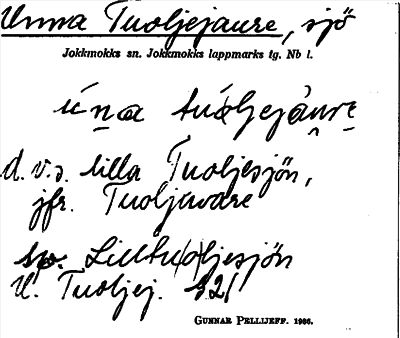 Unna Tuoljejaure, sjö
Jokkmokks sn. Jokkmokks lappmarks tg. Nb l.
úna tuoljejàure
d.v.s. lilla Tuoljesjön,
jfr. Tuoljavare
sv. Lilltuoljesjön
U. Tuoljej. S21
GUNNAR PELLIJEFF. 1986.